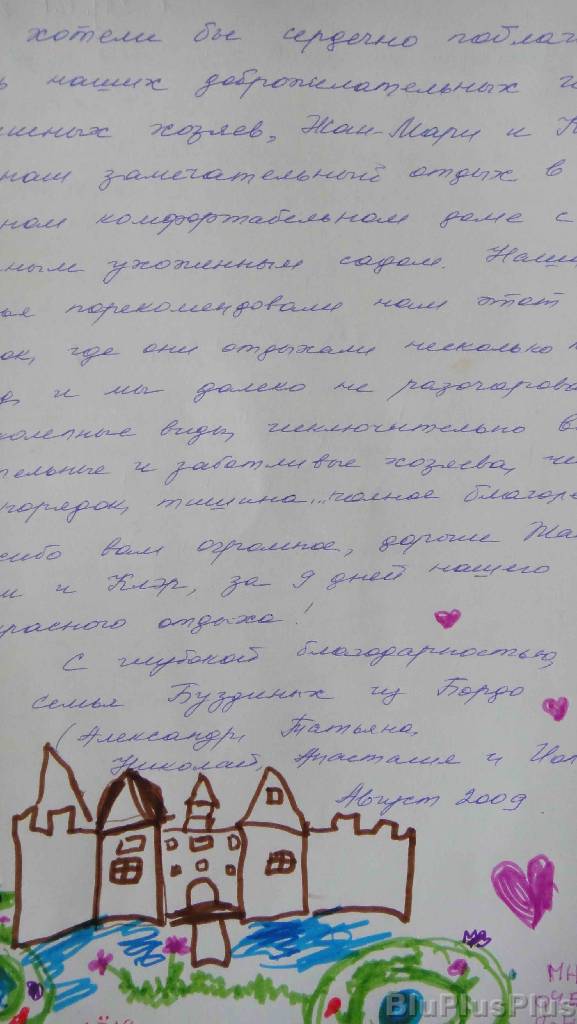 хотели бы сердечно поблаго
ь наших доброжелательных и
ишных хозяев, Жан-Мари и К
наш замечательный отдых в
ном комфортабельном доме с
ным ухоженным садом. Наши
ья порекомендовали нам этот
ок, где они отдыхали несколько
д, и мы далеко не разочарова
колепные виды, исключительно в
тельные и заботливые хозяева, чи
порядок, тишина... полное благоро
сибо вам огромное, дорогие Жа
и и Клэр, за 9 дней нашего
красного отдыха!
С глубокой благодарностью,
семья Буздиных из Бордо
(Александр, Татьяна,
Николай, Анастасия и
Август 2009
BluPlusPlus